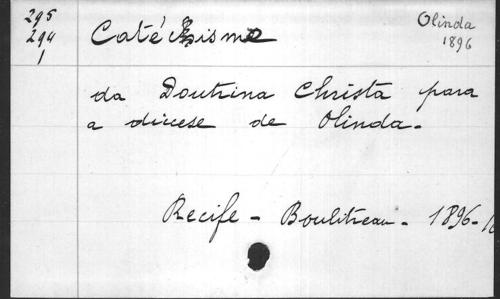 295
294
1
Olinda
1896
Catéchismo
da Doutrina Christa para
a diocese de Olinda.
Recife - Boulitreau - 1896 -